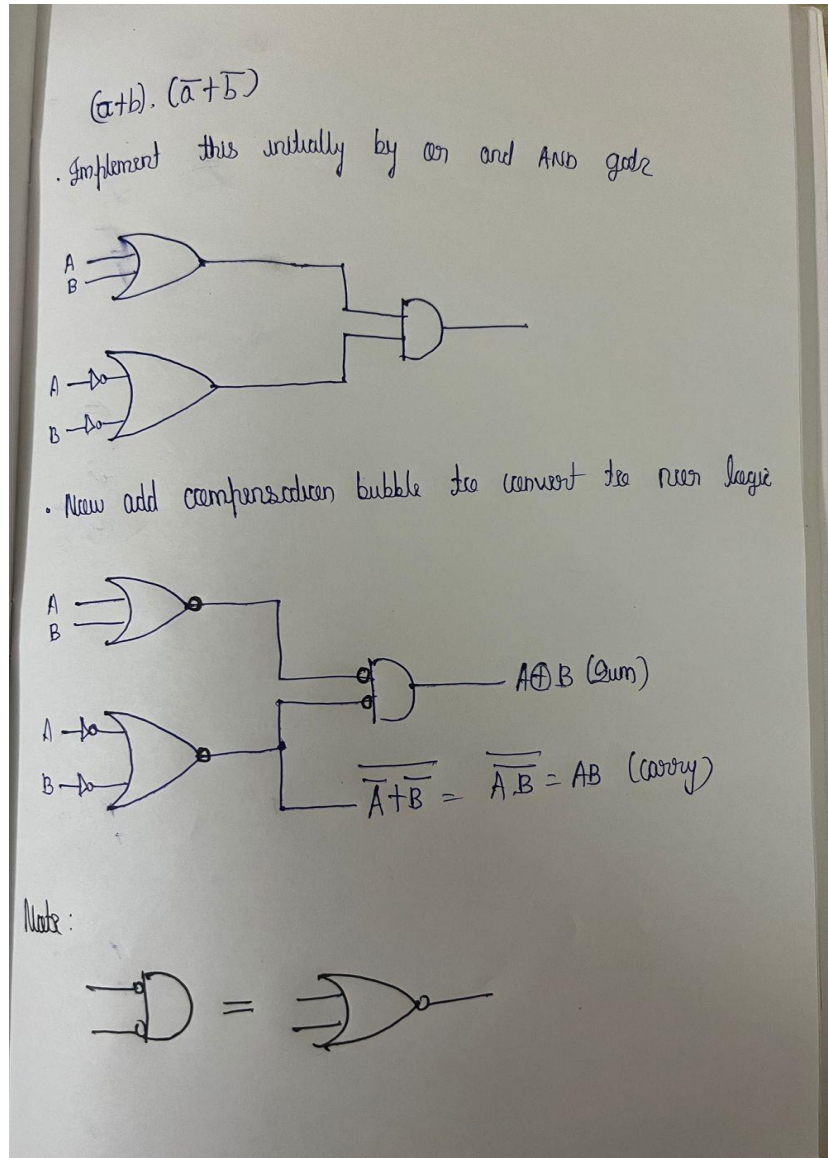 (a+b). (a̅+b̅)
. Implement this initially by or and AND gate
A
B
A
B
. Now add compensation bubble to convert to nor logic
A
B
A⊕B (Sum)
A
B
\overline{\overline{A}+\overline{B}} = \overline{\overline{A.B}} = AB (carry)
Note:
=